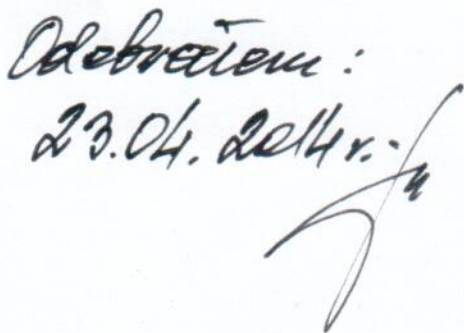 Odebrałem:
23.04.2014 r.-